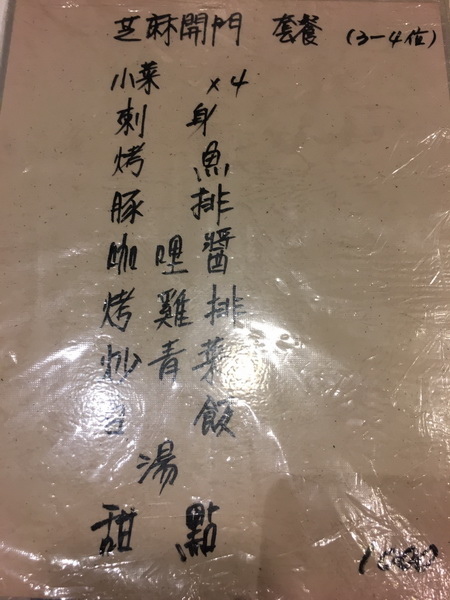 芝麻開門 套餐 (3-4位)
小菜 x4
刺身
烤魚
豚排
咖哩醬
烤雞排
炒青菜
白飯
湯
甜點
1080